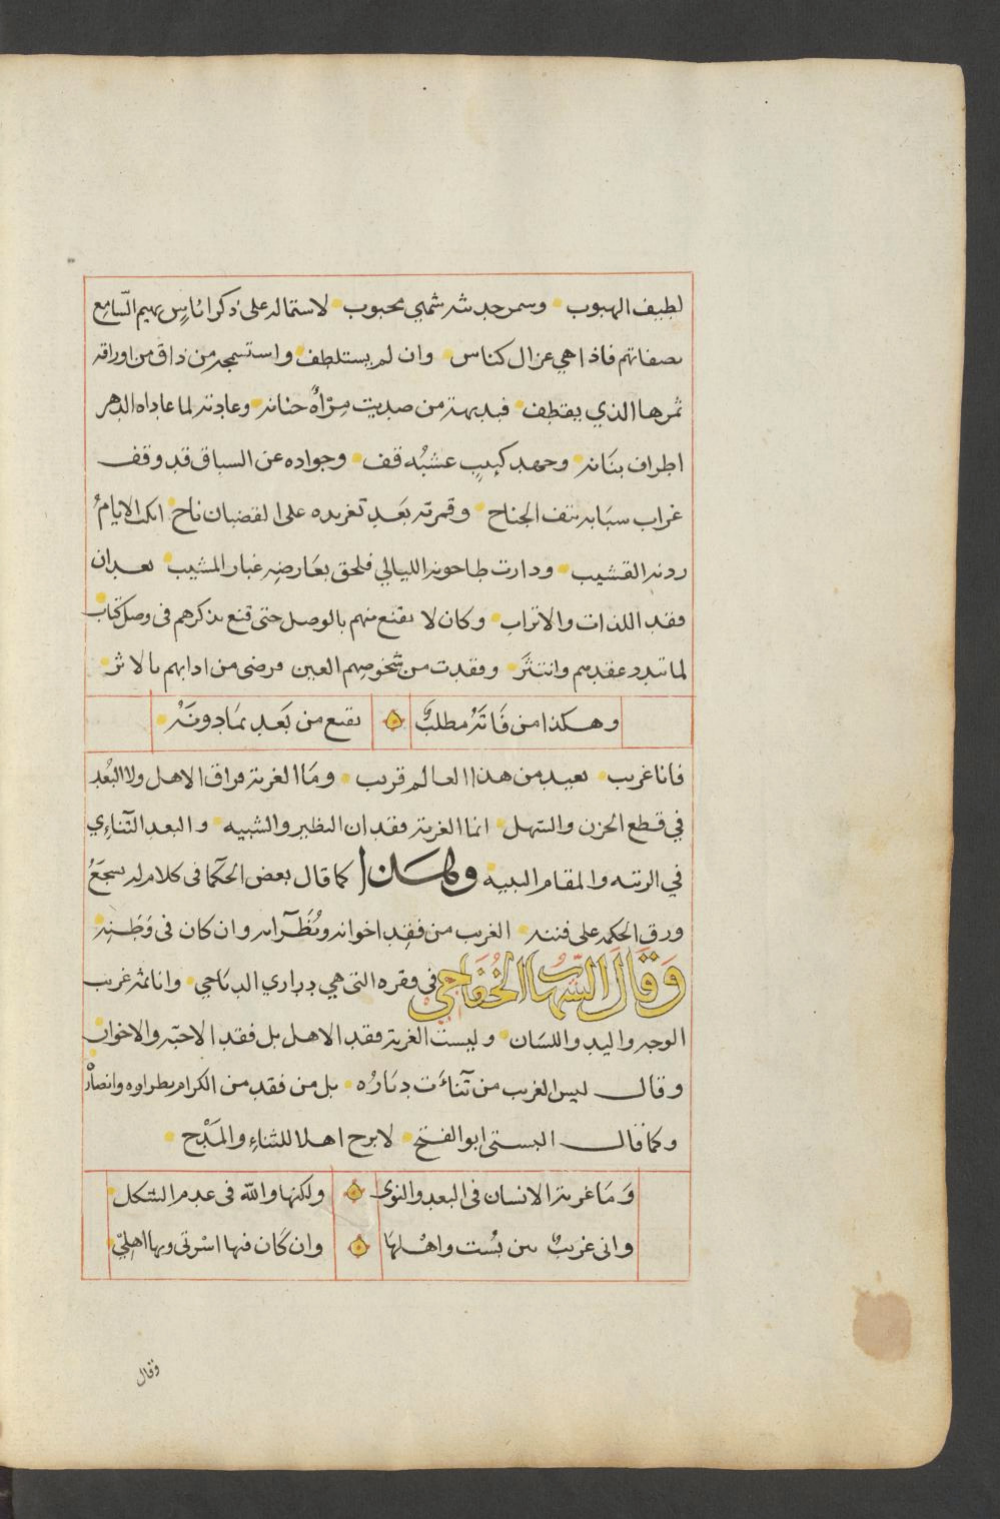 لطيف الهبوب وسمر حديثه شهي محبوب لاستماله على ذكر اناس يهيم السامع
بصفاتهم فاذا هي غزال كناس وان لم يستلطف واستسمجه من ذاق من اوراقه
ثمرها الذي يقطف فبديهة من صديت مرأة جنانه وعادته لما عاداه الدهر
اطراف بنانه وجهد كئيب عشبه قف وجواده عن السباق قد وقف
غراب سبابه نتف الجناح وقمرته بعد تغريده على القضبان ناح الايام
ردنه القشيب ودارت طاحونة الليالي فلحق بعارضه غبار المشيب بعد ان
فقد اللذات والاتراب وكان لا يقنع منهم بالوصل حتى قنع بذكرهم فى وصل كتاب
لما تبدد عقدهم وانتثر وفقدت من شخوصهم العين فرضى من ادابهم بالاثر
وهكذا من فاته مطلب يقنع من بعد بما دونه
فانا غريب بعيد من هذا العالم قريب وما الغربة فراق الاهل ولا البعد
في قطع الحزن والسهل انما الغربة فقدان النظير والشبيه والبعد التناءي
في الرتبه والمقام النبيه كما قال بعض الحكما فى كلام له سجع
ورق الحكمه على فننه الغريب من فقد اخوانه ونظرآءه وان كان فى وطنه
وقال الشهاب الخفاجي فى فقره التى هي دراري الدياجي وانا ثم غريب
الوجه واليد واللسان وليست الغربة فقد الاهل بل فقد الاحبّه والاخوان
وقال ليس الغريب من تناءت دياره بل من فقد من الكرام نظراوه وانصاره
وكما قال البستى ابو الفتح لا برح اهلا للثناء والمدح
وما غربة الانسان فى البعد والنوى ولكنها والله فى عدم الشكل
وانى غريب بين بست واهلها وان كان فيها اسرتى وبها اهلي
وقال